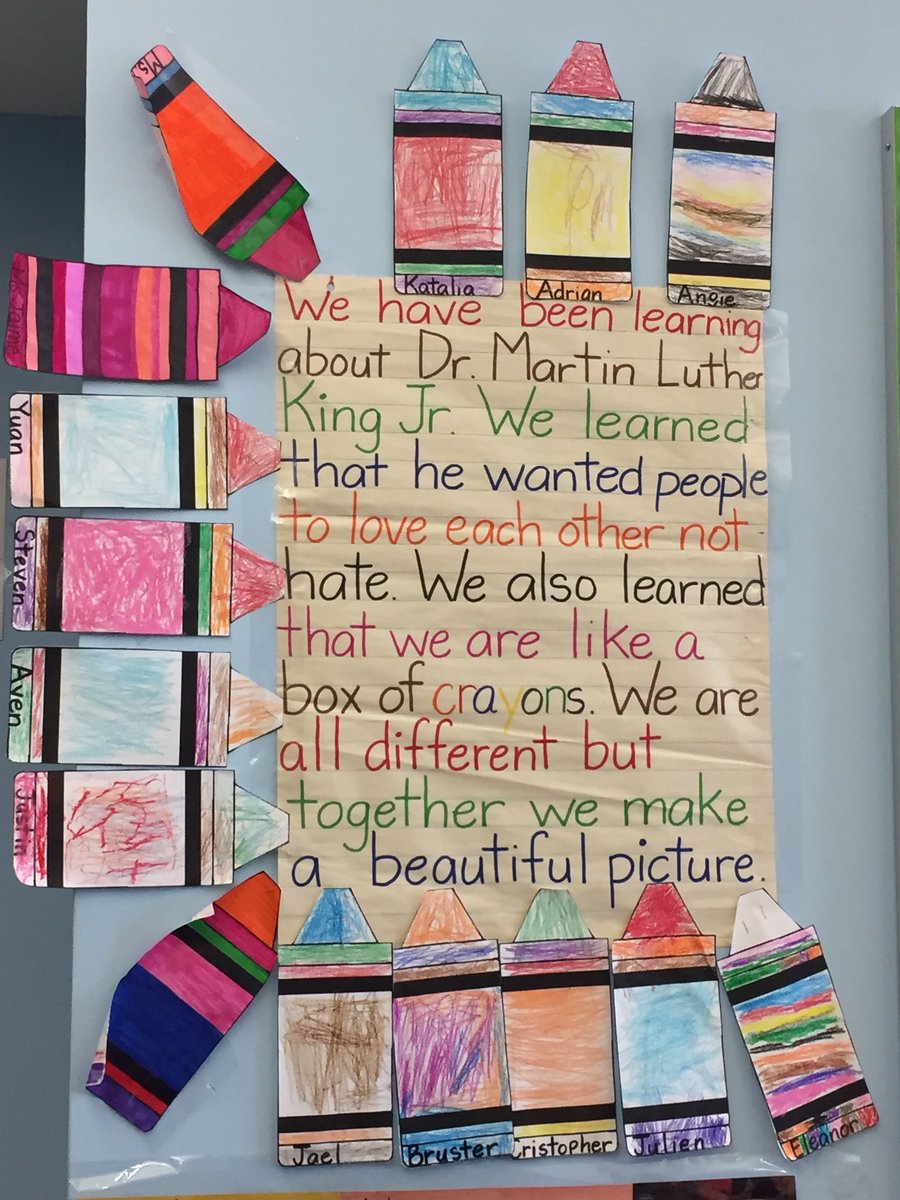 Ms
Katalia
Adrian
Angie
We have been learning
about Dr. Martin Luther
King Jr. We learned
that he wanted people
to love each other not
hate. We also learned
that we are like a
box of crayons. We are
all different but
together we make
a beautiful picture.
Yuan
Steven
Aven
Justin
Jael
Bruster
Cristopher
Julien
Eleanor